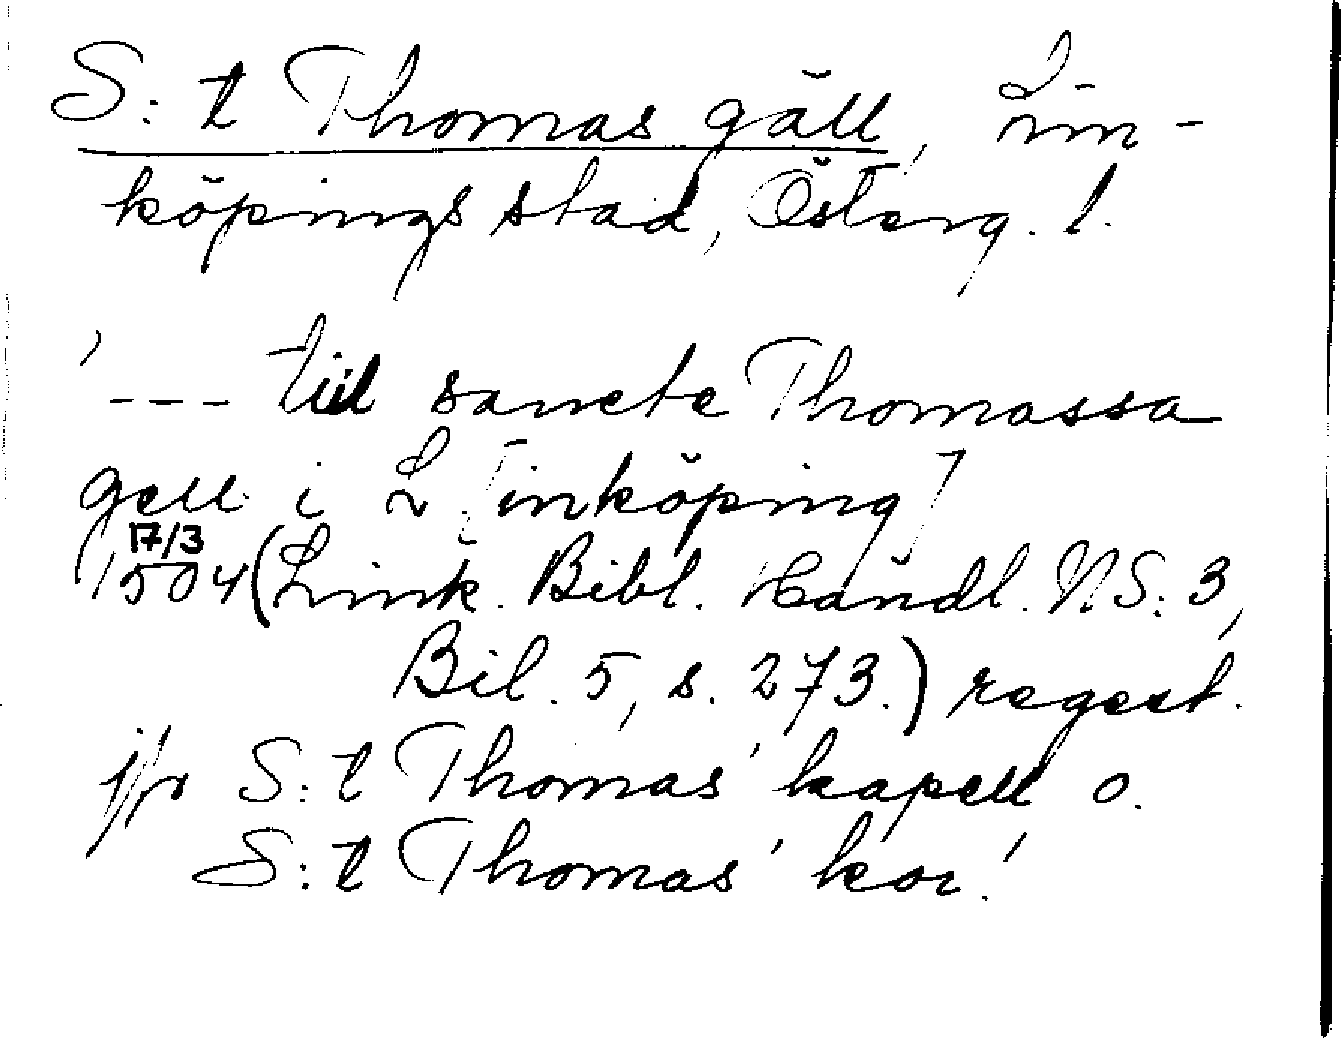 S:t Thomas gäll, Lin-
köpings stad, Österg. l.
' --- till sancte Thomassa
gell i L[inköping]
17/3
1504 (Link. Bibl. Handl. N.S. 3,
Bil. 5, s. 273.) regest.
jfr S:t Thomas' kapell o.
S:t Thomas' kor.'